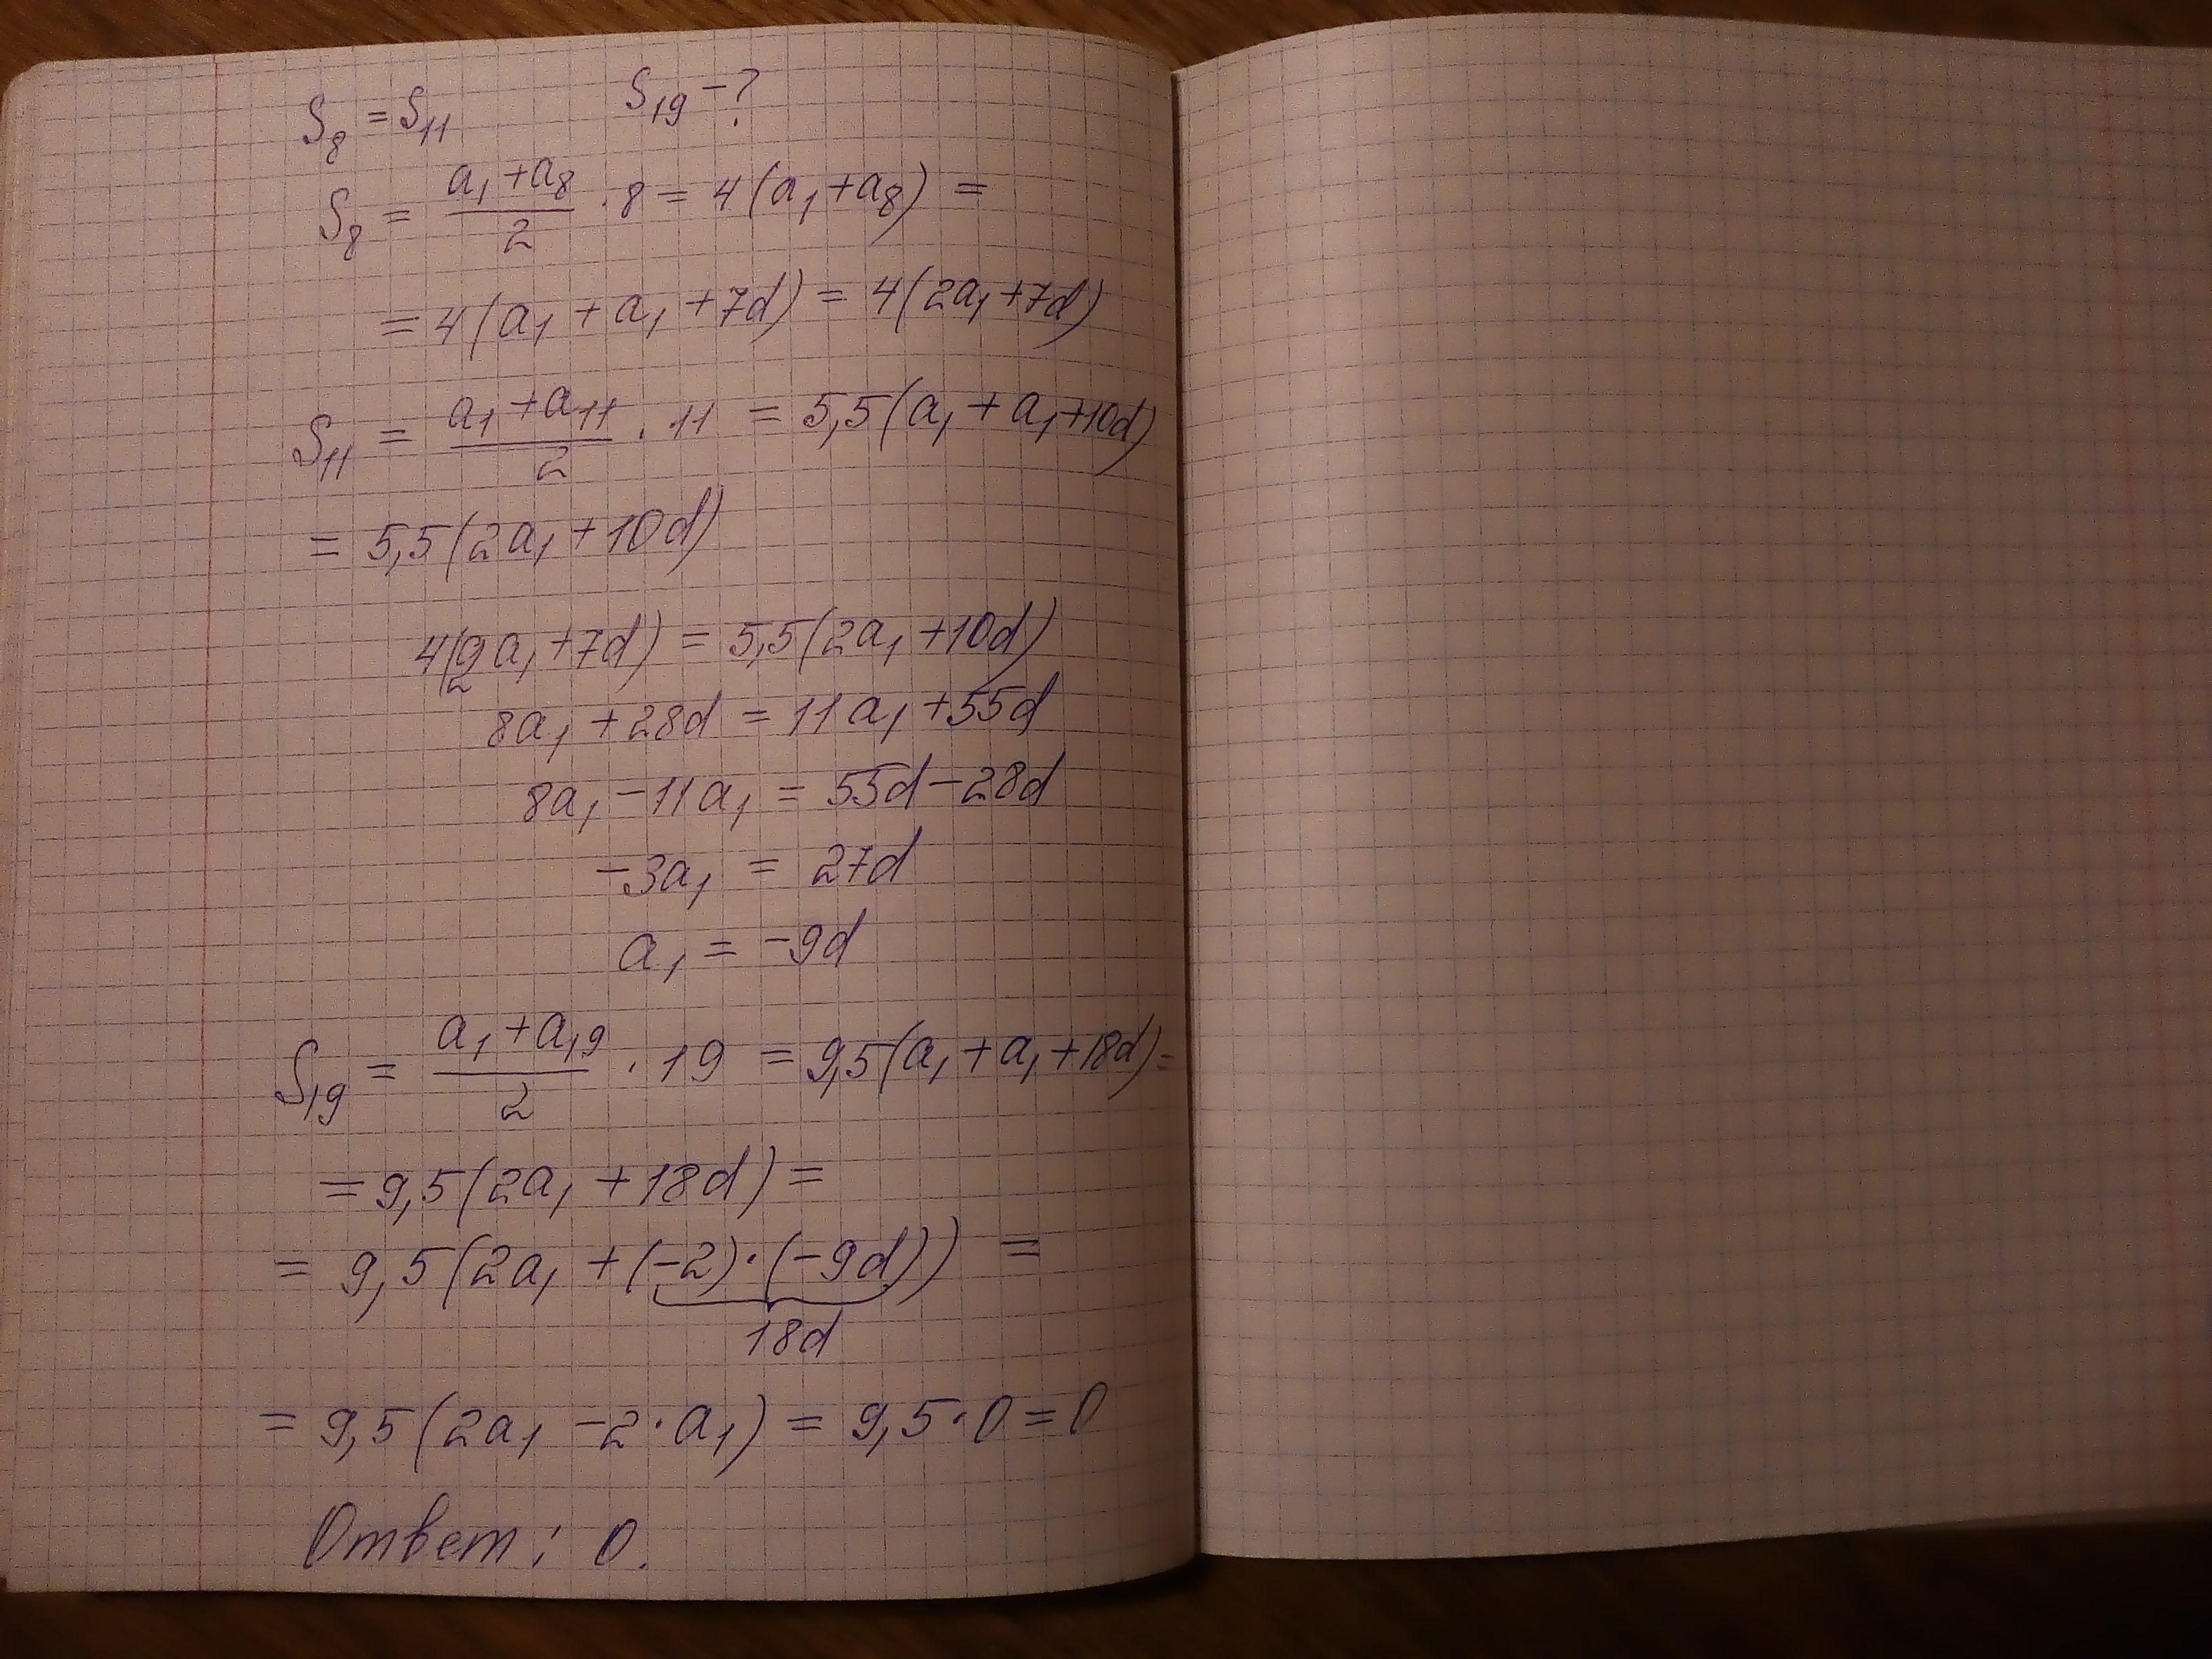 S₈ = S₁₁ S₁₉ - ?
S₈ = (a₁ + a₈)/2 · 8 = 4(a₁ + a₈) =
= 4(a₁ + a₁ + 7d) = 4(2a₁ + 7d)
S₁₁ = (a₁ + a₁₁)/2 · 11 = 5,5(a₁ + a₁ + 10d)
= 5,5(2a₁ + 10d)
4(2a₁ + 7d) = 5,5(2a₁ + 10d)
8a₁ + 28d = 11a₁ + 55d
8a₁ - 11a₁ = 55d - 28d
-3a₁ = 27d
a₁ = -9d
S₁₉ = (a₁ + a₁₉)/2 · 19 = 9,5(a₁ + a₁ + 18d) =
= 9,5(2a₁ + 18d) =
= 9,5(2a₁ + (-2)·(-9d)) =
18d
= 9,5(2a₁ - 2·a₁) = 9,5·0 = 0
Ответ: 0.